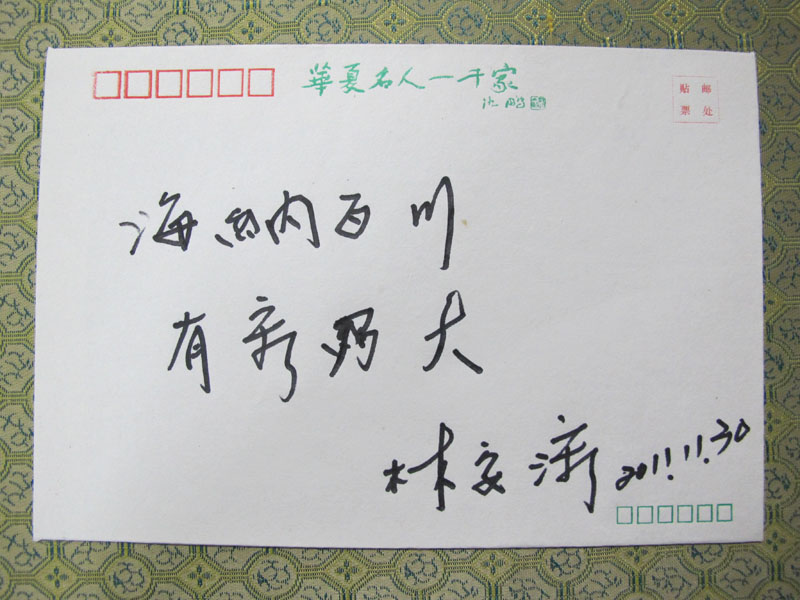 華夏名人一千家
沈鹏
贴 邮
票 处
海纳百川
有容乃大
林文漪 2011.11.30